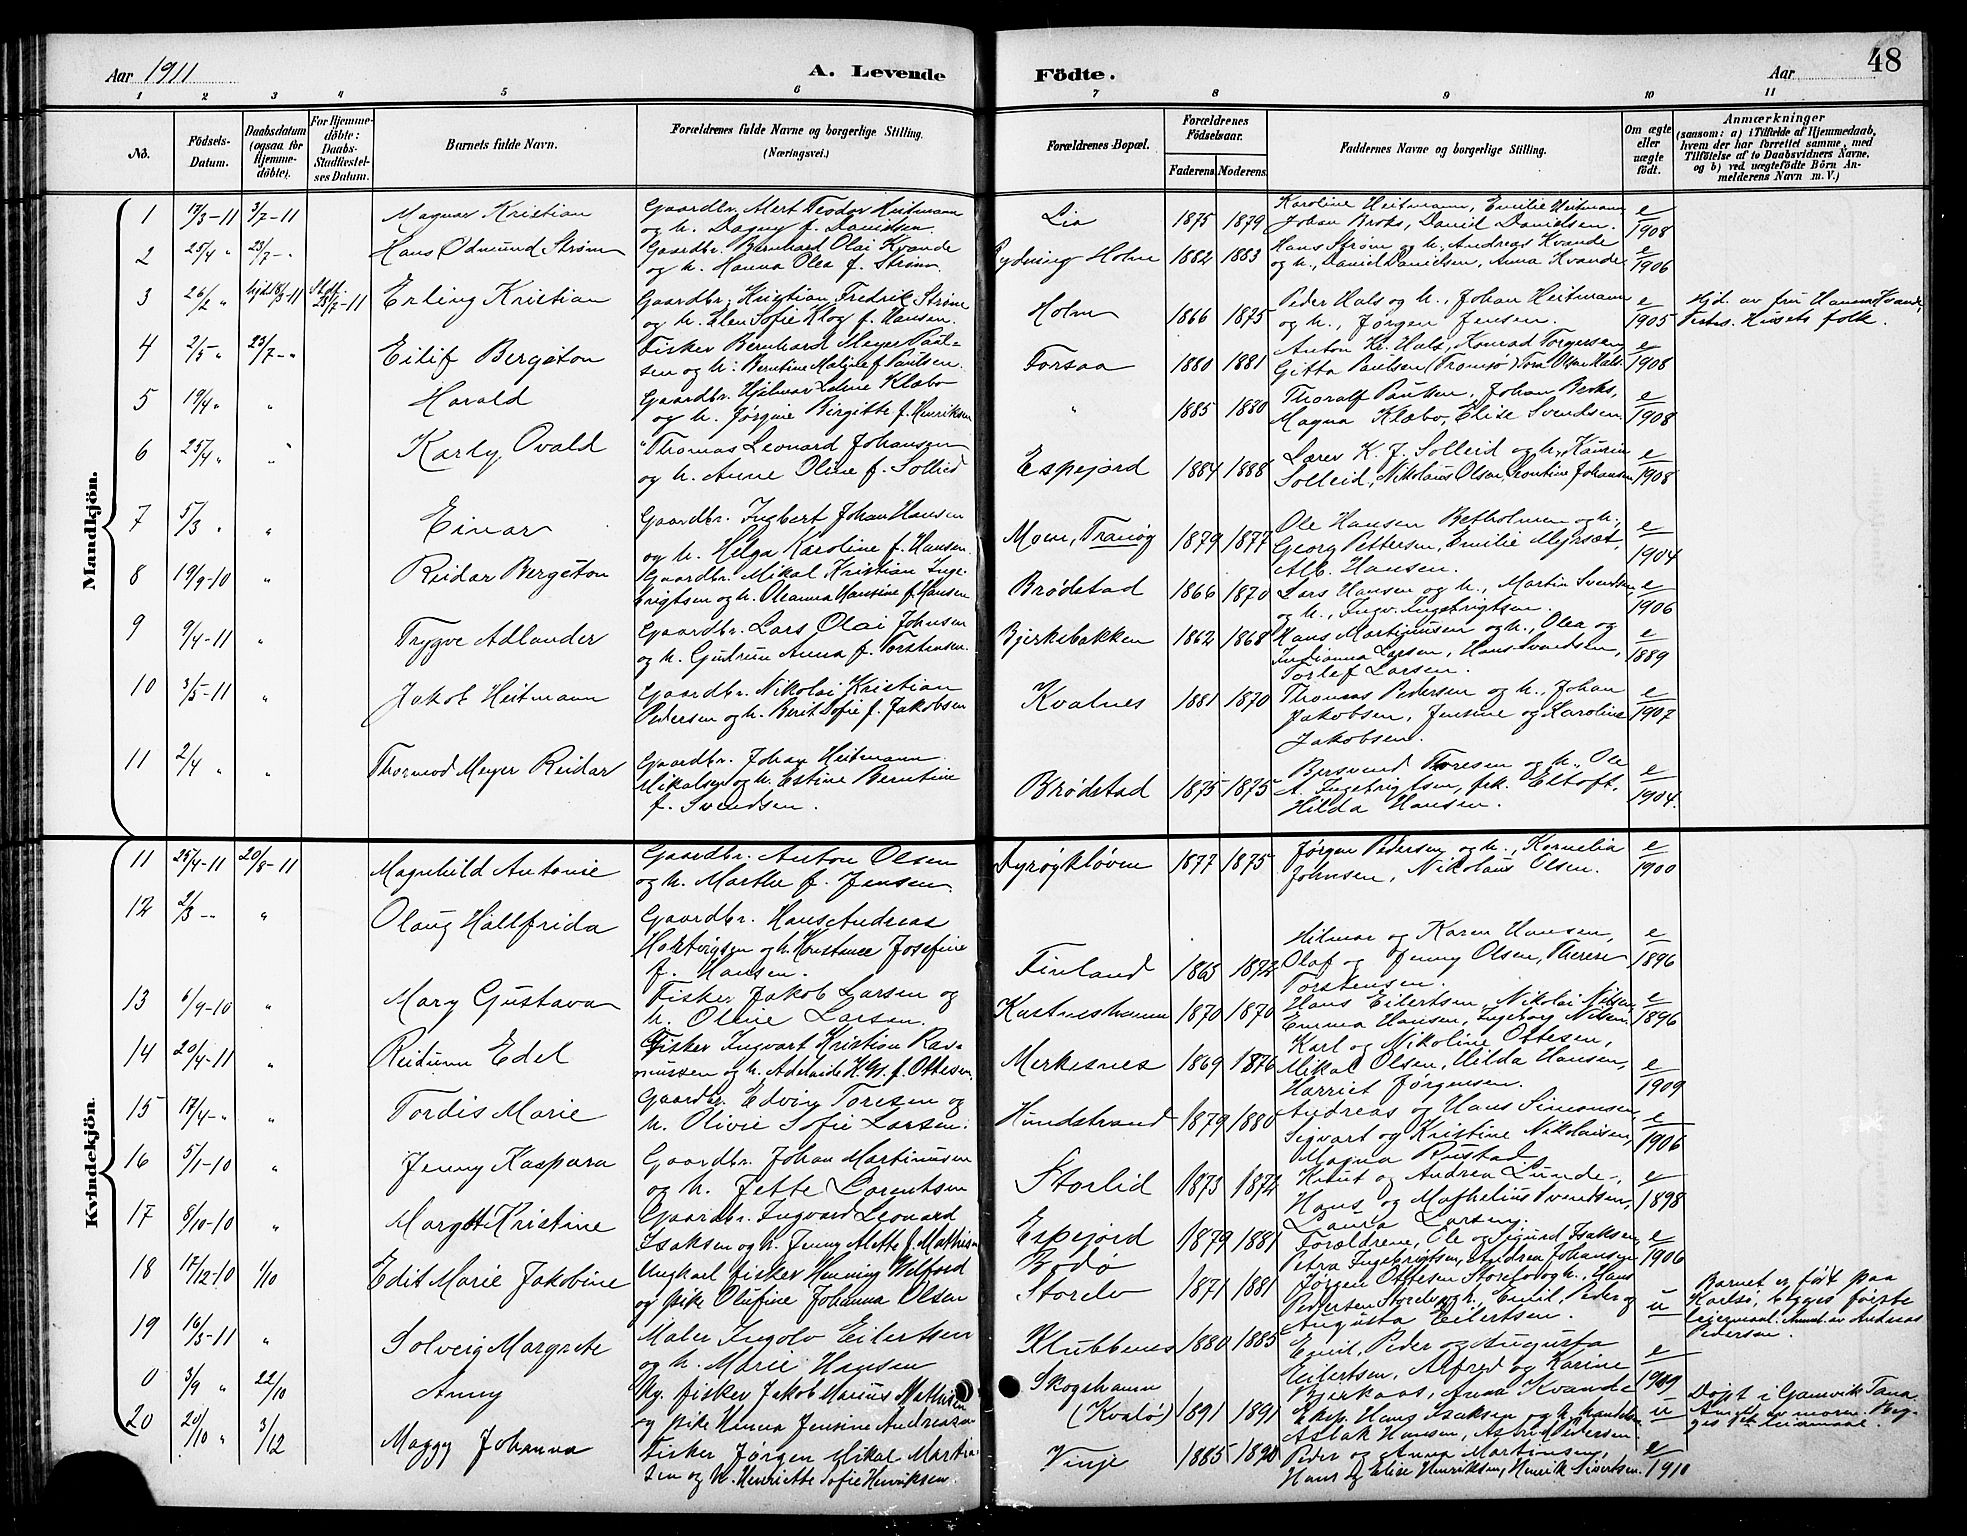 Aar 1911
A. Levende
Födte.
Aar
48
1 2 3 4 5 6 7 8 9 10 11
No.
Födsels-Datum.
Daabsdatum (ogsaa for Hjemme-döbte).
For Hjemme-döbte: Daabs-Stadfæstel-ses Datum.
Barnets fulde Navn.
Forældrenes fulde Navne og borgerlige Stilling.
(Næringsvei.)
Forældrenes Bopæl.
Forældrenes Födselsaar.
Faderens Moderens
Faddernes Navne og borgerlige Stilling.
Om ægte eller uægte födt.
Anmærkninger
(saasom: a) i Tilfælde af Hjemmedaab,
hvem der har forrettet samme, med
Tilföielse af to Daabsvidners Navne,
og b) ved uægtefödte Börn An-
melderens Navn m. V.)
Mandkjön.
1 17/3-11 3/7-11 Magnar Kristian Gaardbr. Alert Teodor Heitmann
og h. Dagny f. Danielsen Lia 1875 1879 Karoline Heitmann, Emilie Heitmann
Johan Broks, Daniel Danielsen. e/1908
2 25/4 " 23/7-" Hans Odmund Strøm Gaardbr. Bernhard Olai Kvande
og h. Hanna Olea f. Strøm. Rydning Holm 1882 1883 Hans Strøm og h., Andreas Kvande
og h., Daniel Danielsen, Anna Kvande e/1906
3 26/2 " hjd. 18/3-11 Stdf. 23/7-11 Erling Kristian Gaardbr. Kristian Fredrik Strøm
og h. Elen Sofie Klog f. Hansen. Holm 1866 1875 Peder Hals og h., Johan Heitmann
og h., Jørgen Jensen. e/1905 Hjd. av fru Hanna Kvande,
Vidn. Husets folk.
4 2/5 " 23/7-" Eilif Bergeton Fisker Bernhard Meyer Paul-
sen og h. Berntine Malene f. Paulsen. Forsaa 1880 1881 Anton Kr. Hals, Konrad Torgersen
Gitta Paulsen (Tromsø) Tora Olsen Hals. e/1908
5 19/4 " " Harald Gaardbr. Hjalmar Lohne Klæbo
og h. Jørgine Birgitte f. Henriksen " 1885 1880 Thoralf Paulsen, Johan Broks,
Magna Klæbo, Elise Svendsen. e/1908
6 25/4 " " Karly Ovald " Thomas Leonard Johansen
og h. Anne Oline f. Sollied Espejord 1884 1888 Lærer K. J. Solleid og h., Kaurin
Solleid, Nikolaus Olsen, Leontine Johansen e/1908
7 5/3 " " Einar Gaardbr. Ingbert Johan Hansen
og h. Helga Karoline f. Hansen. Moen, Tranøy 1879 1877 Ole Hansen Betholmen og h.,
Georg Pettersen, Emilie Myrsæt,
Alb. Hansen. e/1904
8 19/9-10 " Reidar Bergeton Gaardbr. Mikal Kristian Inge-
brigtsen og h. Oleanna Hansine f. Hansen Brødstad 1866 1870 Lars Hansen og h., Martin Svendsen
og h., Ingv. Ingebrigtsen. e/1906
9 9/4-11 " Trygve Adlander Gaardbr. Lars Olai Johnsen
og h. Gudrun Anna f. Torstensen. Bjerkebakken 1862 1868 Hans Martinusen og h., Olea og
Indianna Larsen, Hans Svendsen,
Torlef Larsen. e/1889
10 3/5-11 " Jakob Heitmann Gaardbr. Nikolai Kristian
Pedersen og h. Berit Sofie f. Jakobsen Kvalnes 1881 1870 Thomas Pedersen og h., Johan
Jakobsen, Jensine og Karoline
Jakobsen. e/1907
11 2/4 " " Thormod Meyer Reidar Gaardbr. Johan Heitmann
Mikalsen og h. Estine Berntine
f. Svendsen. Brødstad 1875 1875 Bersvend Toresen og h., Ole
A. Ingebrigtsen, frk. Eltoft,
Hilda Hansen. e/1904
Kvindekjön
11 25/4-11 20/8-11 Magnhild Antonie Gaardbr. Anton Olsen
og h. Marthe f. Jensen. 1877 1875 Jørgen Pedersen og h., Kornelia
Johnsen, Nikolaus Olsen. e/1900
12 2/3 -" " Olaug Hallfrida Gaardbr. Hans Andreas
Hartvigsen og h. Konstance Josefine
f. Hansen. Finland 1865 1872 Hilmar og Karen Hansen,
Olaf og Jenny Olsen, Therese
Torstensen. e/1896
13 6/9-10 " Mary Gustava Fisker Jakob Larsen og
h. Oline Larsen. Kastneshamn 1870 1870 Hans Eilertsen, Nikolai Nilsen,
Emma Hansen, Ingeborg Nilsen. e/1896
14 20/4-11 " Reidunn Edel Fisker Ingvart Kristian Ras-
mussen og h. Adelaide K. M. f. Ottesen. Merkesnes 1869 1876 Karl og Nikoline Ottesen,
Mikal Olsen, Hilda Hansen,
Harriet Jørgensen. e/1909
15 17/4-" " Tordis Marie Gaardbr. Edvin Toresen og
h. Olivie Sofie Larsen. Hundstrand 1879 1880 Andreas og Hans Simonsen,
Sigvart og Kristine Nikolaisen,
Magna Rustad. e/1906
16 5/1-10 " Jenny Kaspara Gaardbr. Johan Martinusen
og h. Jette Lorentsen Storlid 1873 1874 Knut og Andrea Lunde,
Hans og Mathelius Svendsen,
Laura Larsen. e/1898
17 8/10-10 " Margit Kristine Gaardbr. Ingvard Leonard
Isaksen og h. Jenny Mette f. Mathisen Espejord 1879 1881 Forældrene, Ole og Sigurd Isaksen,
Petra Ingebrigtsen, Andrea Johansen e/1906
18 17/12-10 1/10 Edit Marie Jakobine Ungkarl fisker Henning Wilford
og pike Olufine Johanna Olsen Bodø
Storelv 1871 1881 Jørgen Ottesen Storelv og h., Hans
Pedersen Storelv og h., Emil, Peder og
Augusta Eilertsen. u Barnet er født paa
begges første
leiermaal. Anmt. av Andreas
Pedersen.
19 16/3-11 " Solveig Margrete Maler Ingolv Eilertsen
og h. Marie Hansen Klubbenes 1880 1885 Emil, Peder og Augusta
Eilertsen, Alfred og Karine
Bjerkaas, Anna Kvande e/1909
0 3/9 " 22/10 Anny Ug. fisker Jakob Marius Mathisen
og pike Hanna Jensine Andreassen Skogshamn
(Kvalø) 1891 1891 Eksp. Hans Isaksen og h.,
Aslak Hansen, Astrid Pedersen. u Døpt i Gamvik Tana
Anmeldt av moren. Beg-
ges 1ste leiermaal.
20 20/10 " 3/12 Maggy Johanna Fisker Jørgen Mikal Martin-
sen og h. Henriette Sofie Henriksen. Vinje 1885 1890 Peder og Anna Martinsen,
Hans og Elise Henriksen, Henrik Sivertsen. e/1910